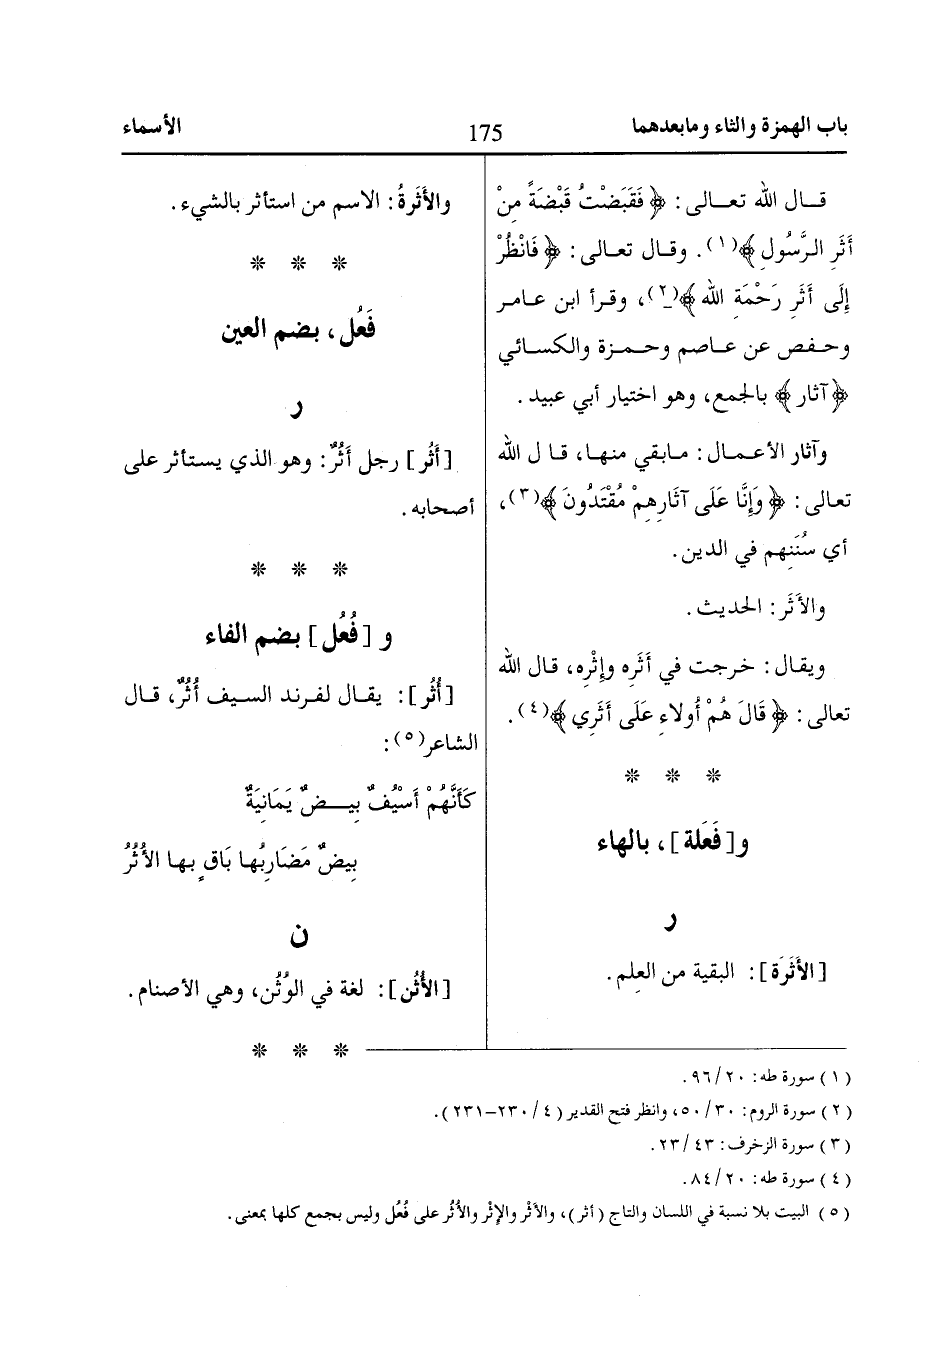 باب الهمزة والثاء ومابعدهما
175
الأسماء
قـال الله تعـالى: ﴿فَقَبَضْتُ قَبْضَةً مِنْ
أَثَرِ الرَّسُولِ﴾(١). وقـال تعـالى: ﴿فَانْظُرْ
إِلَى أَثَرِ رَحْمَةِ الله﴾(٢)، وقـرأ ابن عـامـر
وحـفـص عن عـاصـم وحـمـزة والكسـائي
﴿آثار﴾ بالجمع، وهو اختيار أبي عبيد.
وآثار الأعـمـال: مـابقي منهـا، قـال الله
تعالى: ﴿وَإِنَّا عَلَى آثَارِهِمْ مُقْتَدُونَ﴾(٣)،
أي سُنَنِهم في الدين.
والأَثَر: الحديث.
ويقال: خرجت في أَثَرِه وإِثْرِه، قال الله
تعالى: ﴿قَالَ هُمْ أُولاءِ عَلَى أَثَرِي﴾(٤).
* * *
و[فَعَلة]، بالهاء
ر
[الأَثَرَة]: البقية من العِلم.
والأَثَرةُ: الاسم من استأثر بالشيء.
* * *
فَعُل، بضم العين
ر
[أَثُر] رجل أَثُرٌ: وهو الذي يستأثر على
أصحابه.
* * *
و [فُعُل] بضم الفاء
[أُثُر]: يقـال لفـرند السـيف أُثُرٌ، قـال
الشاعر(٥):
كَأَنَّهُمْ أَسْيُفٌ بِيـــضٌ يَمَانِيَةٌ
بِيضٌ مَضَارِبُها بَاقٍ بها الأُثُرُ
ن
[الأُثُن]: لغة في الوُثُن، وهي الأصنام.
* * *
(١) سورة طه: ٩٦/٢٠.
(٢) سورة الروم: ٥٠/٣٠، وانظر فتح القدير (٤/ ٢٣٠-٢٣١).
(٣) سورة الزخرف: ٢٣/٤٣.
(٤) سورة طه: ٨٤/٢٠.
(٥) البيت بلا نسبة في اللسان والتاج (أثر)، والأَثْر والإِثْر والأُثُر على فُعُل وليس بجمع كلها بمعنى.